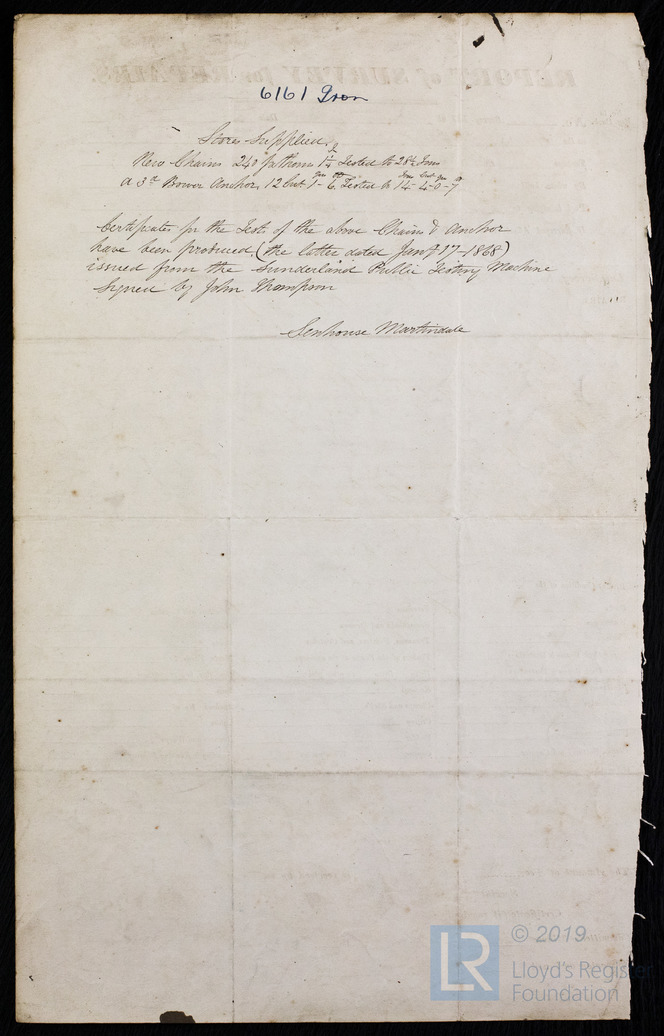 REPORT of SURVEY for REPAIRS,
6161 Iron
Stores Supplied.
New Chains 240 fathoms 1 1/4 Tested to 28 1/2 Tons
A 3rd Bower Anchor, 12 Cwt 1 qrs 6 lb Tested to 14 Tons 4 Cwt 0 qrs 7 lb
Certificates for the Test of the above Chains & Anchor
have been produced. (the latter dated Jany 17-1868)
issued from the Sunderland Public Testing Machine
Signed by John Thompson
Senhouse Martindale
LR
© 2019
Lloyd's Register
Foundation